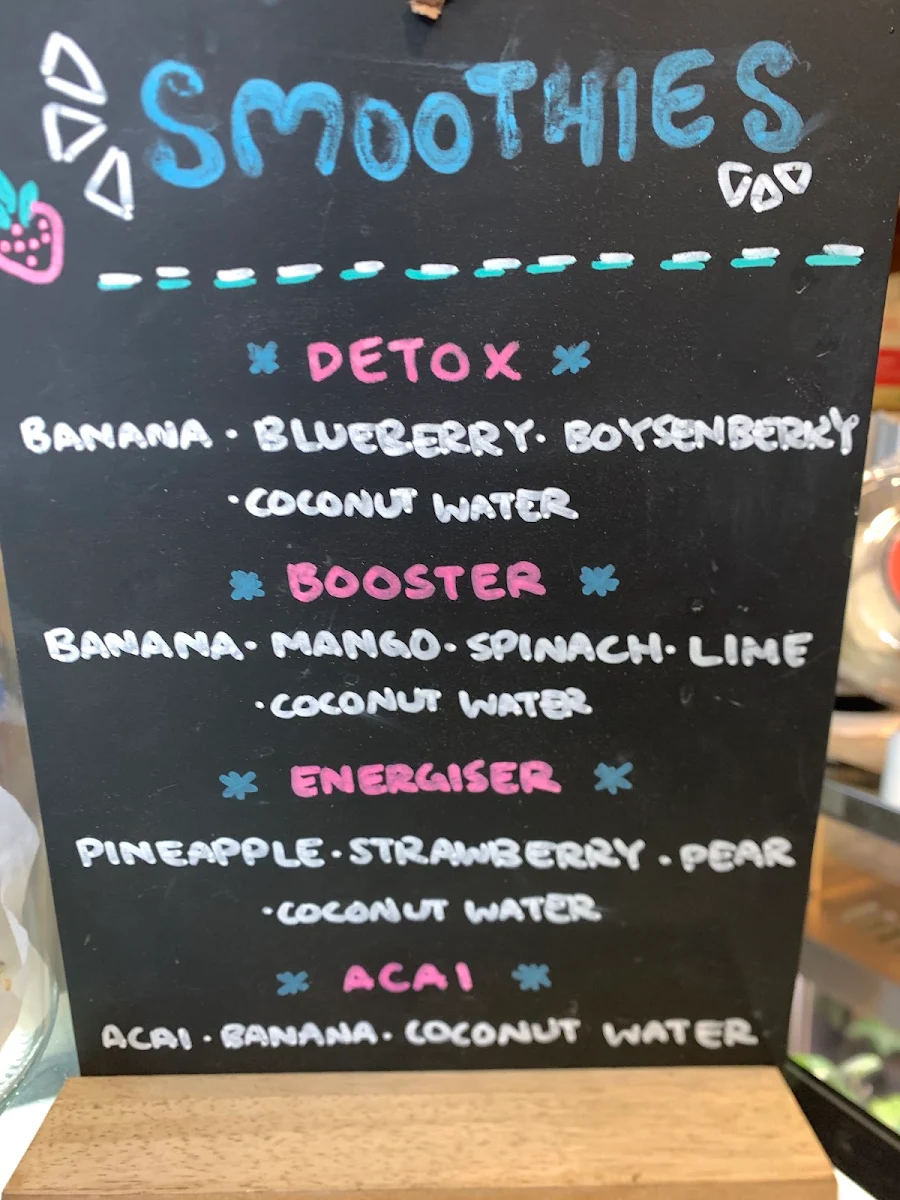 SMOOTHIES
* DETOX *
BANANA · BLUEBERRY · BOYSENBERRY
· COCONUT WATER
* BOOSTER *
BANANA · MANGO · SPINACH · LIME
· COCONUT WATER
* ENERGISER *
PINEAPPLE · STRAWBERRY · PEAR
· COCONUT WATER
* ACAI *
ACAI · BANANA · COCONUT WATER